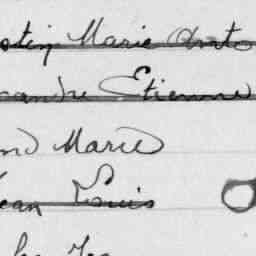 ostin Marie Anto
candre Etienne
nd Marie
Jean Louis